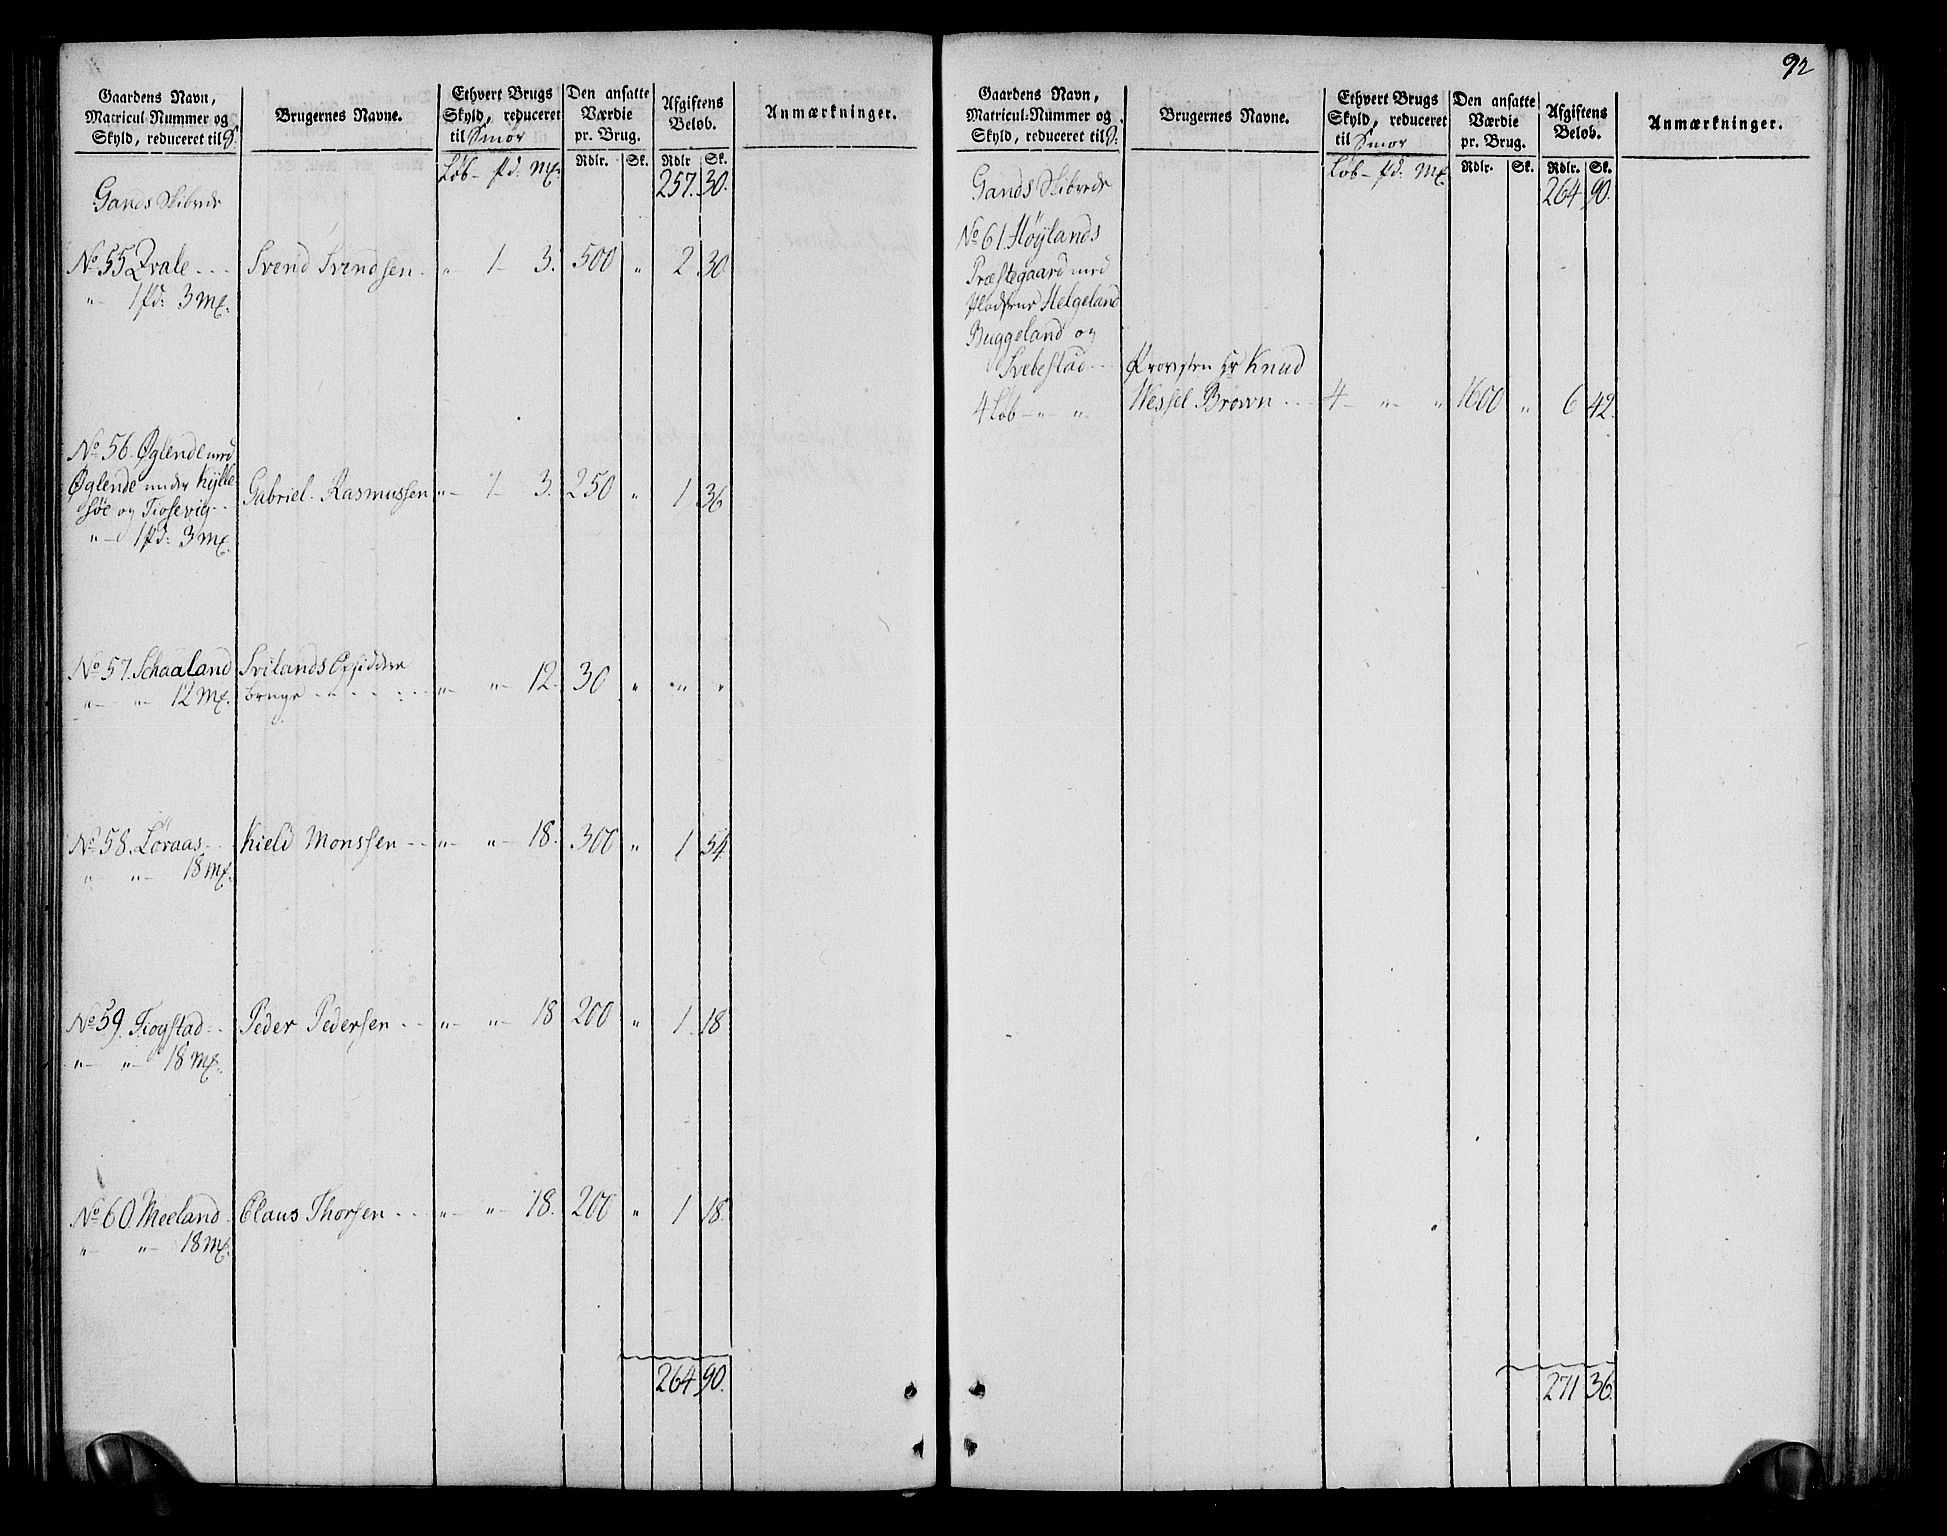 92
Gaardens Navn,
Matricul-Nummer og
Skyld, reduceret til
Brugernes Navne.
Ethvert Brugs
Skyld, reduceret
til Smør
Den ansatte
Værdie
pr. Brug.
Afgiftens
Beløb.
Anmærkninger.
Løb - pd: Mk.
Rdlr. Sk.
Rdlr Sk.
Gands Skibrede 257. 30.
No 55 Qvale - - - Svend Svendsen - " 1 - 3. 500 " 2 30.
" - 1 pd: 3 Mk.
No 56. Øglende med
Øglende under Kylle-
søe og Tiosevig - - Gabriel Rasmussen " - 1 - 3. 250 " 1 36
" - 1 pd: 3 Mk.
No 57. Schaaland Svilands Opsiddere
" - " - 12 Mk. bruge - - - - " - " - 12. 30 " " "
No 58. Loraas - - Kield Monssen - - " - " - 18. 300 " 1 54
" - " - 18 Mk.
No 59. Tiogstad - - Peder Pedersen - - " - " - 18 200 " 1. 18
" - " - 18 Mk.
No 60. Meeland - Claus Thorsen - - - " - " - 18. 200 " 1 18.
" - " - 18 Mk.
264 90.
Gaardens Navn,
Matricul-Nummer og
Skyld, reduceret til
Brugernes Navne.
Ethvert Brugs
Skyld, reduceret
til Smør
Den ansatte
Værdie
pr. Brug.
Afgiftens
Beløb.
Anmærkninger.
Løb - pd: Mk.
Rdlr. Sk.
Rdlr. Sk.
Gands Skibrede 264 90.
No 61. Høylands
Præstegaard med
Pladsene Helgeland
Buggeland og
Svebestad - - - Provsten Hr Knud
4 Løb - " - " Wessel Brown - - - 4 - " - " 1600 " 6 42.
271 36.